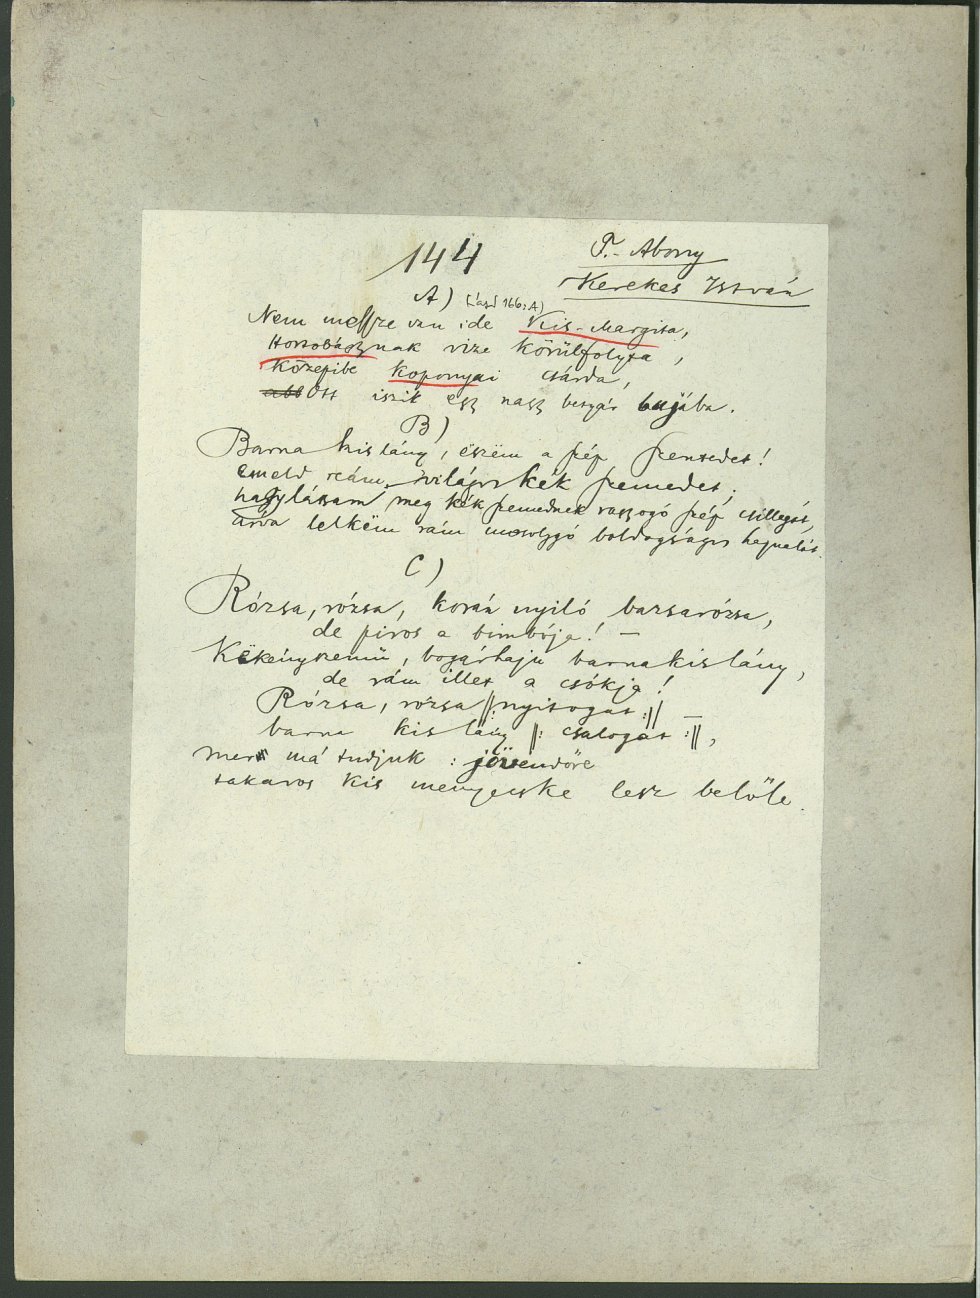 144
T.-Abony
Kerekes István
A) (Lásd 166; A)
Nem messze van ide Kis-Margita,
Hortobágynak vize körülfolyta,
Közepibe koponyai csárda,
abb Ott iszik egy nagy betyár bujába.
B)
Barna kislány, ëszëm a szép szentedet!
emeld reám világos kék szemedet;
hagy lássam meg kék szemednek ragyogó szép csillagát,
árva lelkëm rám mosolygó boldogságos hajnalát.
C)
Rózsa, rózsa, korán nyiló bazsarózsa,
de piros a bimbója! —
Kökényszemü, bogárhaju barna kislány,
de rám illet a csókja!
Rózsa, rózsa ||: nyitogat :|| —
barna kis lány ||: csalogat :||,
mert má tudjuk : jövendőre
takaros kis menyecske lesz belőle.